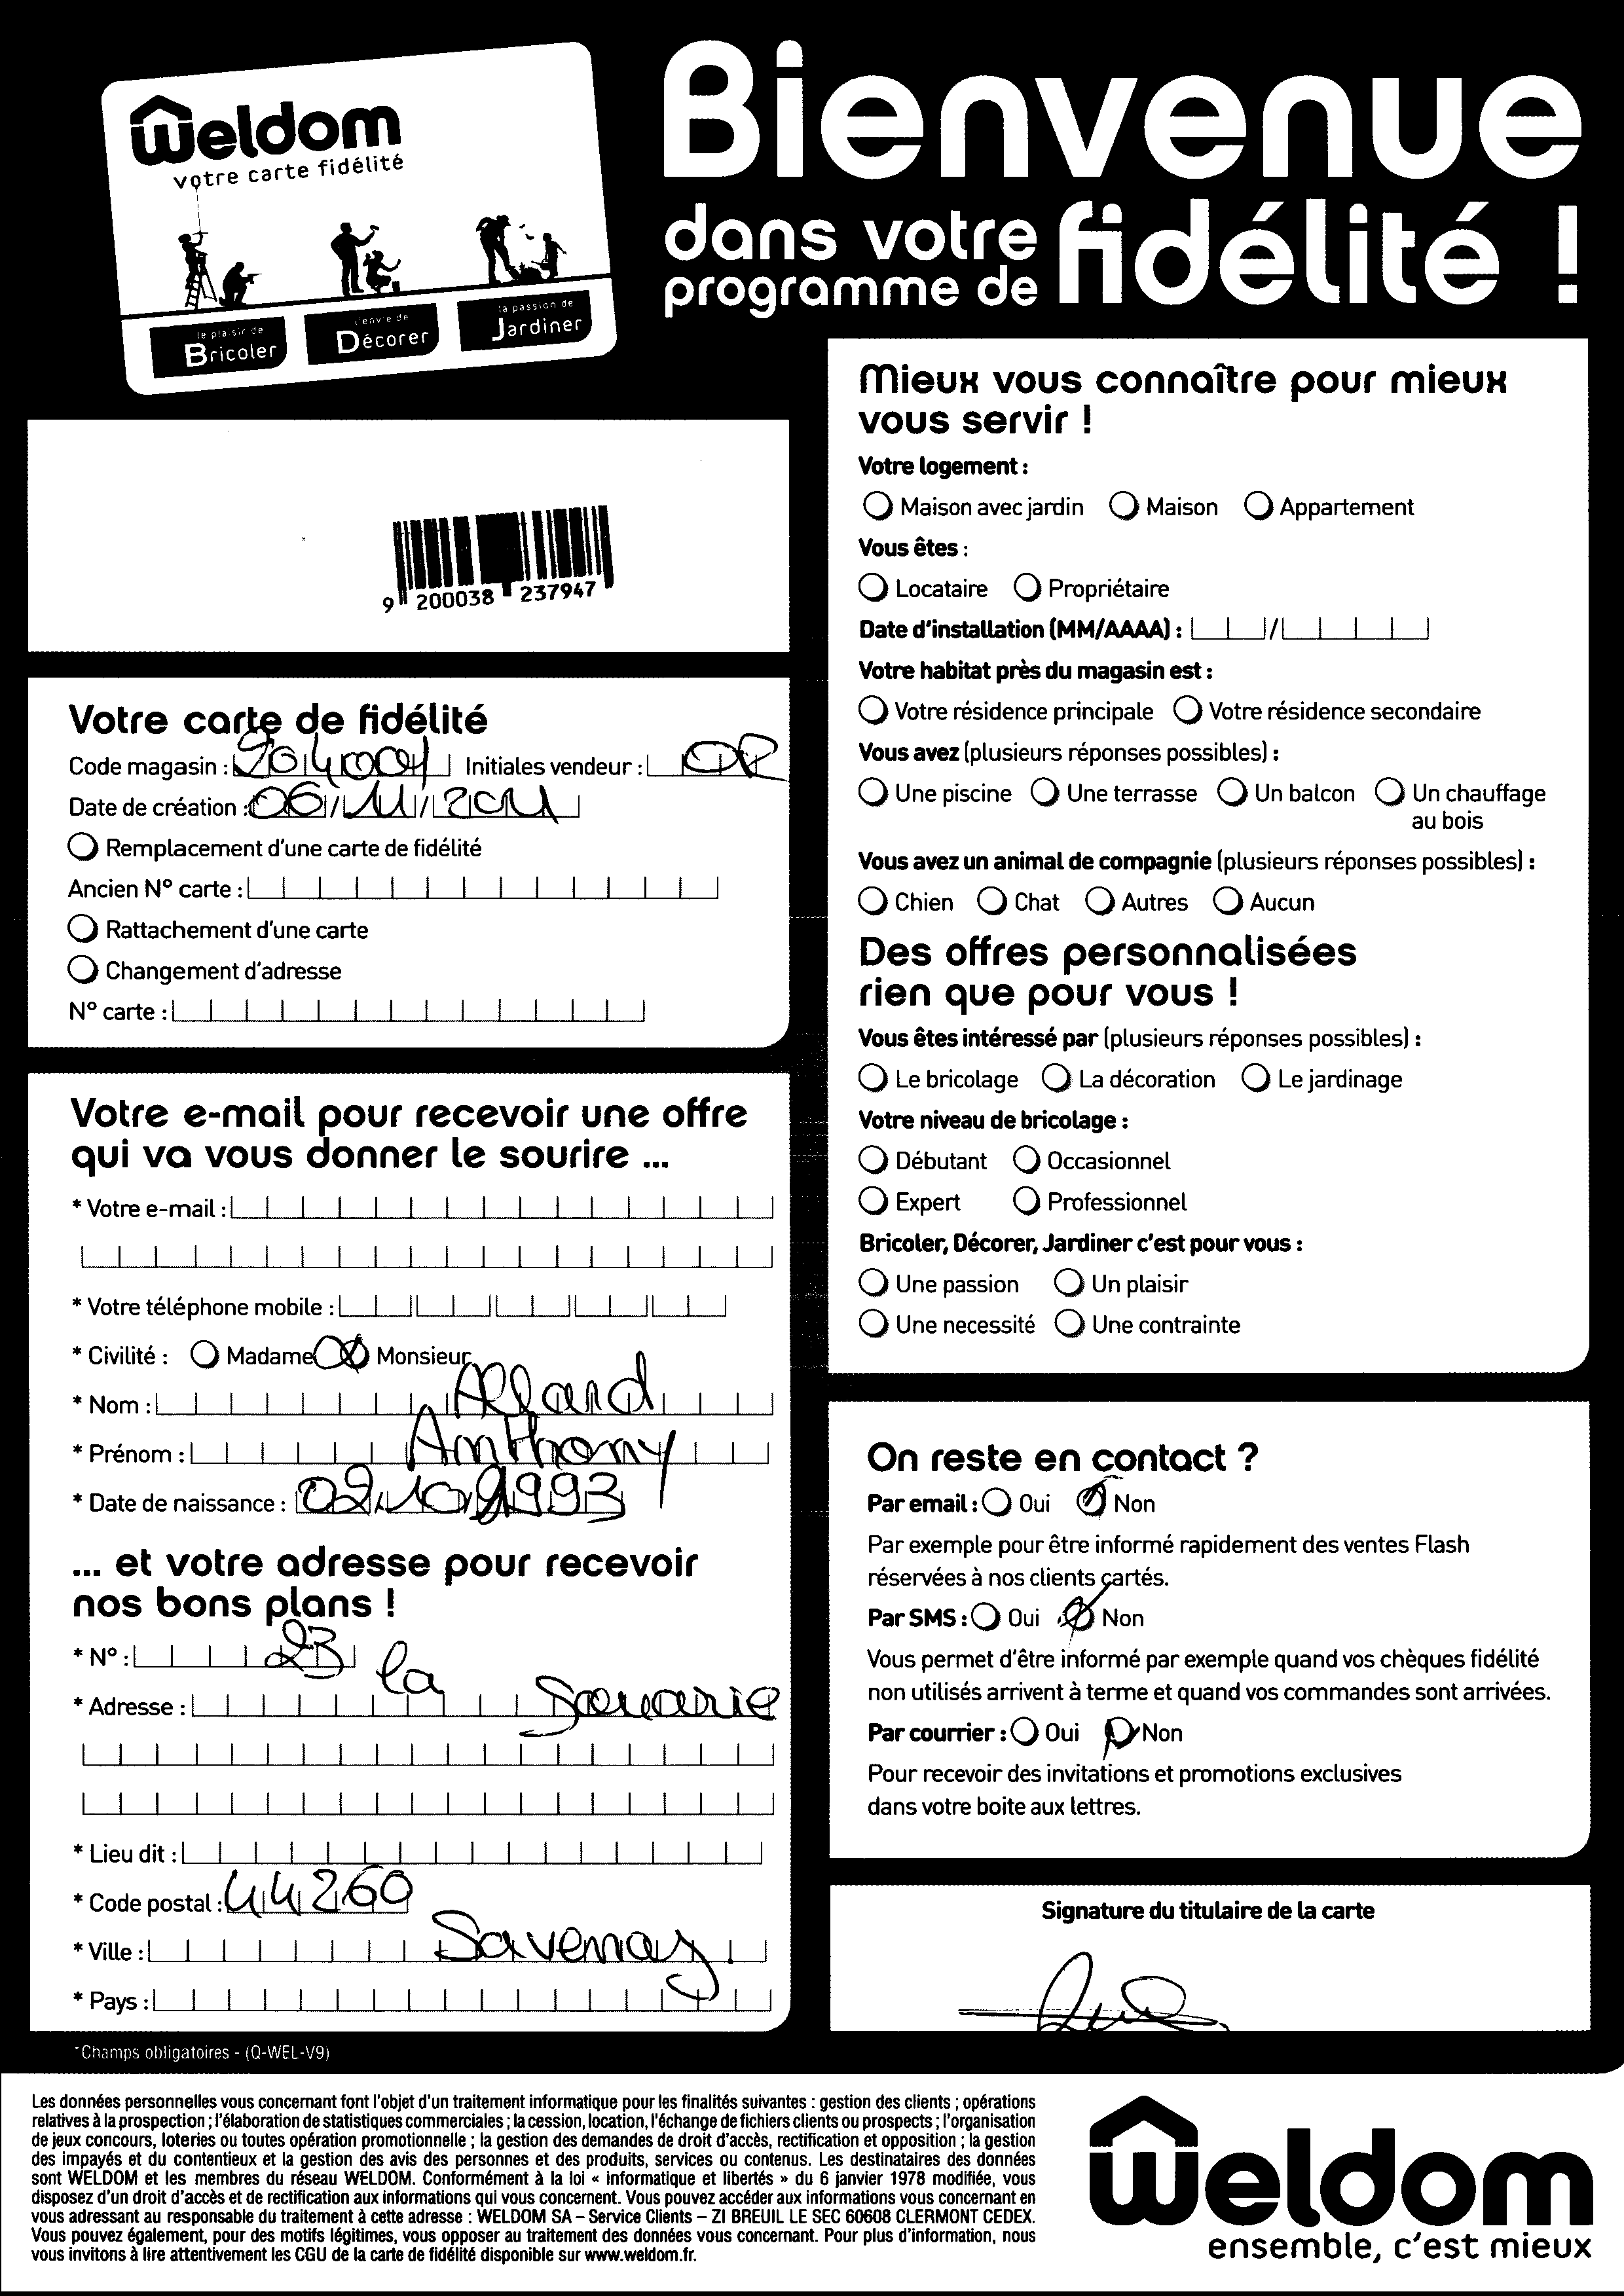 Weldom
votre carte fidélité
le plaisir de
Bricoler
l'envie de
Décorer
la passion de
Jardiner
Bienvenue
dans votre
programme de fidélité !
9 200038 237947
Votre carte de fidélité
Code magasin : Initiales vendeur :
Date de création : 06/11/2011
Remplacement d'une carte de fidélité
Ancien N° carte :
Rattachement d'une carte
Changement d'adresse
N° carte :
Votre e-mail pour recevoir une offre
qui va vous donner le sourire ...
* Votre e-mail :
* Votre téléphone mobile :
* Civilité : Madame Monsieur
* Nom : Allard
* Prénom : Anthony
* Date de naissance : 1993
... et votre adresse pour recevoir
nos bons plans !
* N° : 23 la
* Adresse :
* Lieu dit :
* Code postal : 44260
* Ville : Savenay
* Pays :
*Champs obligatoires - (Q-WEL-V9)
Mieux vous connaître pour mieux
vous servir !
Votre logement :
Maison avec jardin Maison Appartement
Vous êtes :
Locataire Propriétaire
Date d'installation (MM/AAAA) : /
Votre habitat près du magasin est :
Votre résidence principale Votre résidence secondaire
Vous avez (plusieurs réponses possibles) :
Une piscine Une terrasse Un balcon Un chauffage
au bois
Vous avez un animal de compagnie (plusieurs réponses possibles) :
Chien Chat Autres Aucun
Des offres personnalisées
rien que pour vous !
Vous êtes intéressé par (plusieurs réponses possibles) :
Le bricolage La décoration Le jardinage
Votre niveau de bricolage :
Débutant Occasionnel
Expert Professionnel
Bricoler, Décorer, Jardiner c'est pour vous :
Une passion Un plaisir
Une necessité Une contrainte
On reste en contact ?
Par email : Oui Non
Par exemple pour être informé rapidement des ventes Flash
réservées à nos clients cartés.
Par SMS : Oui Non
Vous permet d'être informé par exemple quand vos chèques fidélité
non utilisés arrivent à terme et quand vos commandes sont arrivées.
Par courrier : Oui Non
Pour recevoir des invitations et promotions exclusives
dans votre boite aux lettres.
Signature du titulaire de la carte
Les données personnelles vous concernant font l'objet d'un traitement informatique pour les finalités suivantes : gestion des clients ; opérations
relatives à la prospection ; l'élaboration de statistiques commerciales ; la cession, location, l'échange de fichiers clients ou prospects ; l'organisation
de jeux concours, loteries ou toutes opération promotionnelle ; la gestion des demandes de droit d'accès, rectification et opposition ; la gestion
des impayés et du contentieux et la gestion des avis des personnes et des produits, services ou contenus. Les destinataires des données
sont WELDOM et les membres du réseau WELDOM. Conformément à la loi « informatique et libertés » du 6 janvier 1978 modifiée, vous
disposez d'un droit d'accès et de rectification aux informations qui vous concernent. Vous pouvez accéder aux informations vous concernant en
vous adressant au responsable du traitement à cette adresse : WELDOM SA – Service Clients – ZI BREUIL LE SEC 60608 CLERMONT CEDEX.
Vous pouvez également, pour des motifs légitimes, vous opposer au traitement des données vous concernant. Pour plus d'information, nous
vous invitons à lire attentivement les CGU de la carte de fidélité disponible sur www.weldom.fr.
Weldom
ensemble, c'est mieux